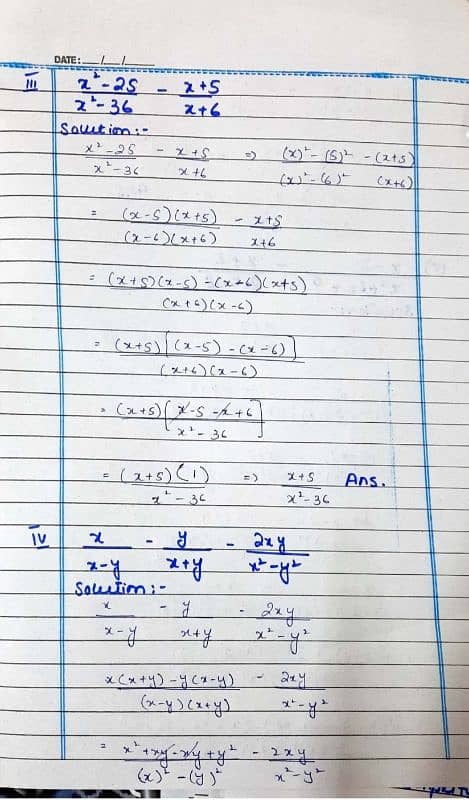 DATE: __/__/____
iii x²-25 / x²-36 - x+5 / x+6
Solution:-
x²-25 / x²-36 - x+5 / x+6 => (x)²-(5)² / (x)²-(6)² - (x+5) / (x+6)
= (x-5)(x+5) / (x-6)(x+6) - x+5 / x+6
= (x+5)(x-5) - (x-6)(x+5) / (x+6)(x-6)
= (x+5)[(x-5) - (x-6)] / (x+6)(x-6)
= (x+5)[x-5-x+6] / x²-36
= (x+5)(1) / x²-36 => x+5 / x²-36 Ans.
iv x / x-y - y / x+y - 2xy / x²-y²
Solution:-
x / x-y - y / x+y - 2xy / x²-y²
x(x+y) - y(x-y) / (x-y)(x+y) - 2xy / x²-y²
= x²+xy-xy+y² / (x)²-(y)² - 2xy / x²-y²